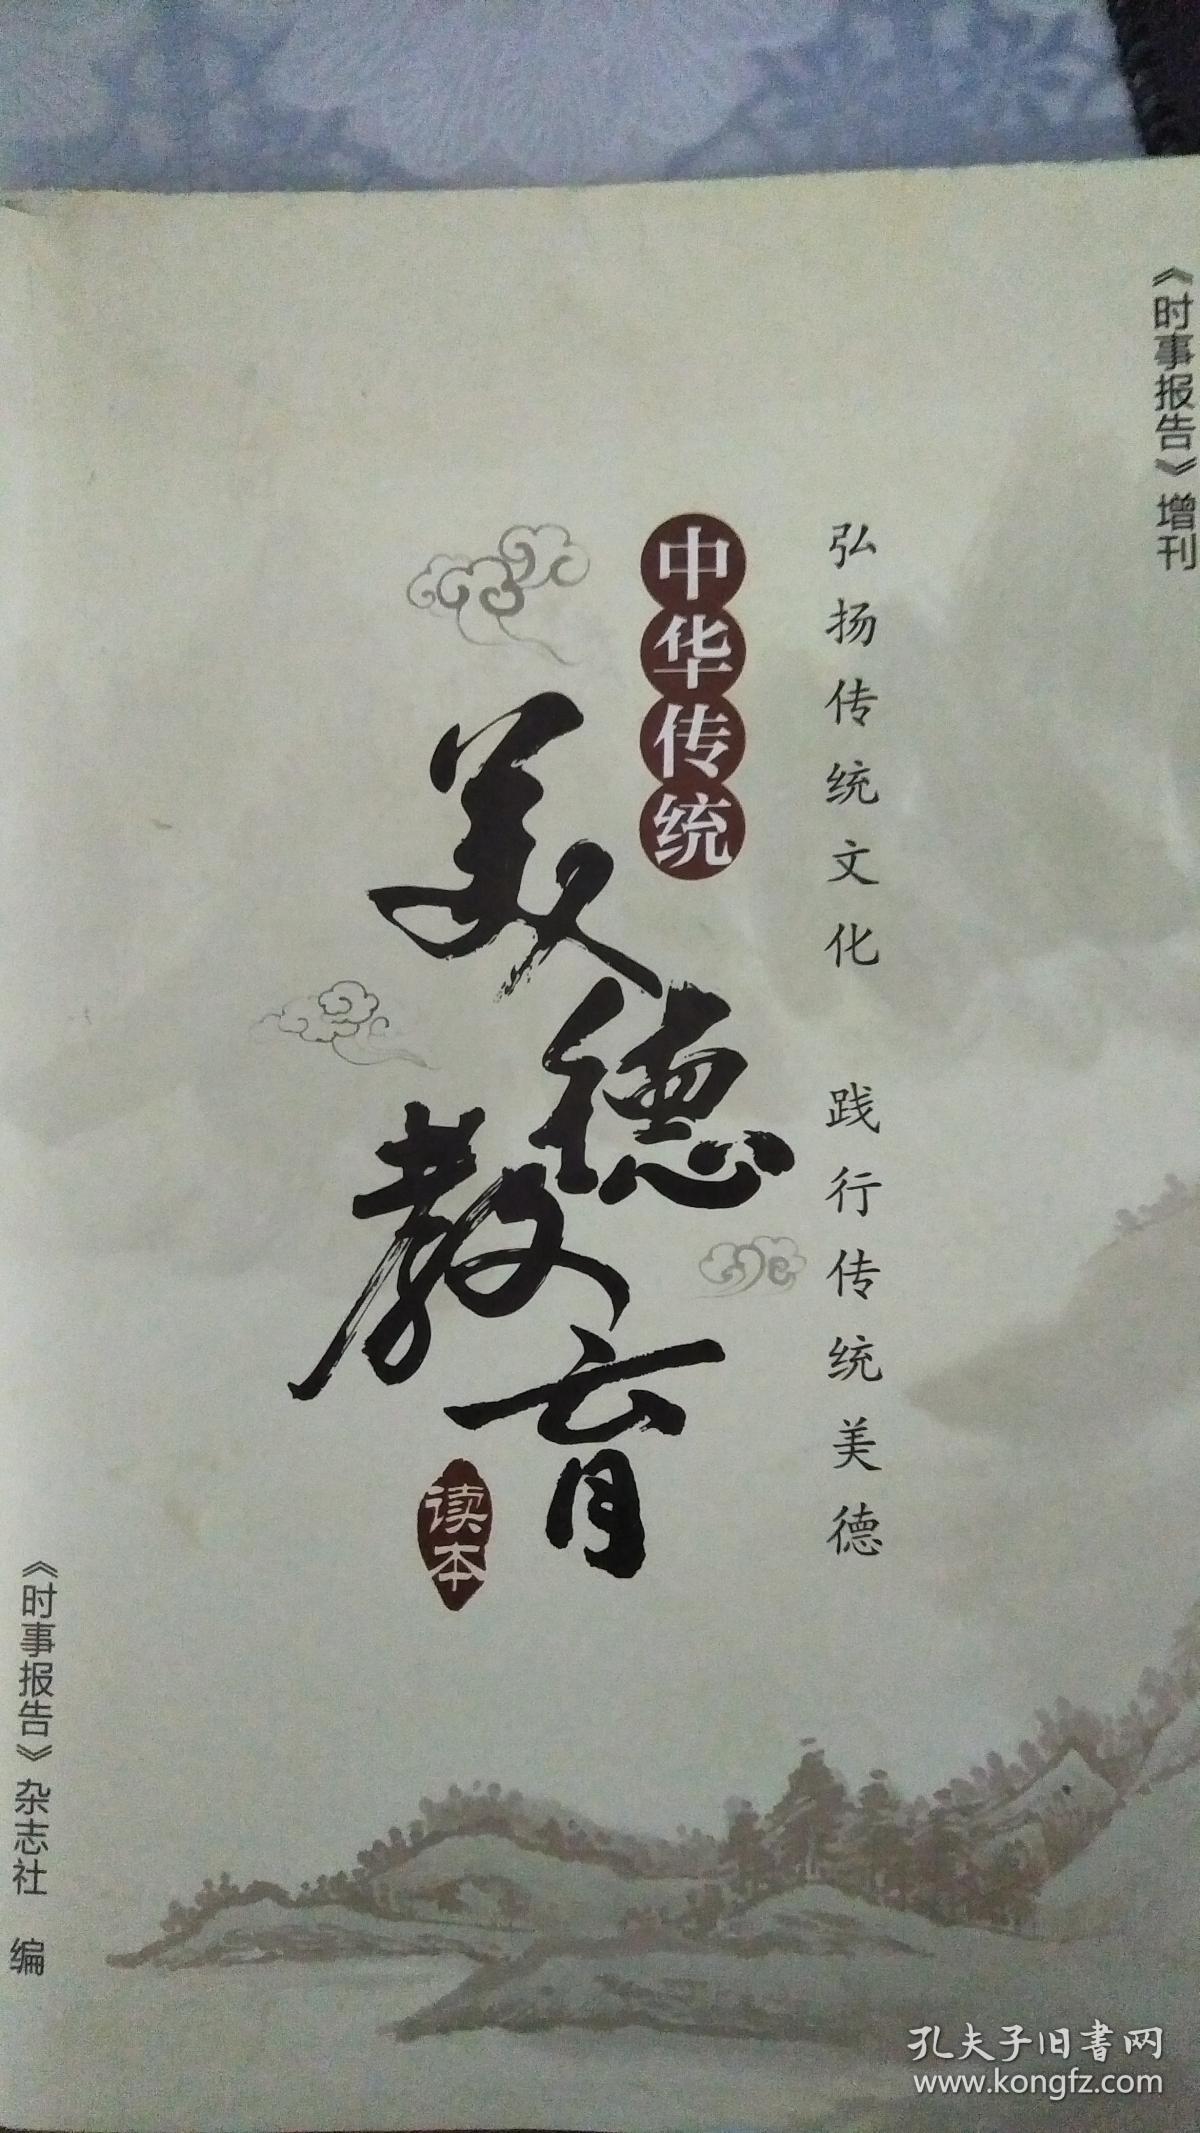 《时事报告》增刊
弘扬传统文化 践行传统美德
中华传统
美德教育
读本
《时事报告》杂志社 编
孔夫子旧书网
www.kongfz.com